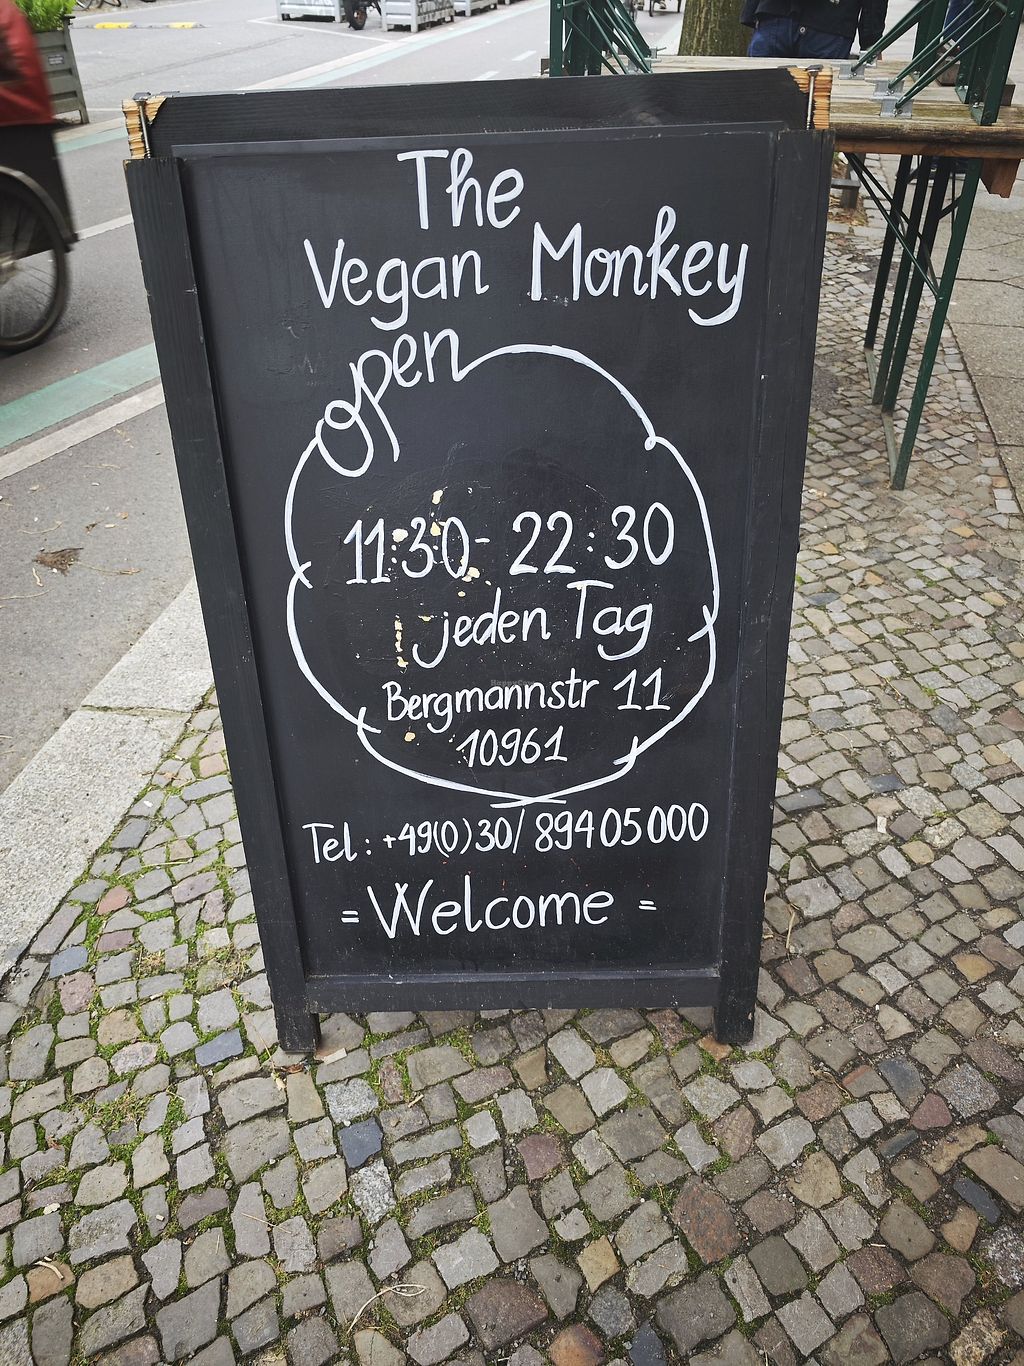 The
Vegan Monkey
open
11:30 - 22:30
jeden Tag
Bergmannstr 11
10961
Tel: +49(0)30/ 89405000
= Welcome =